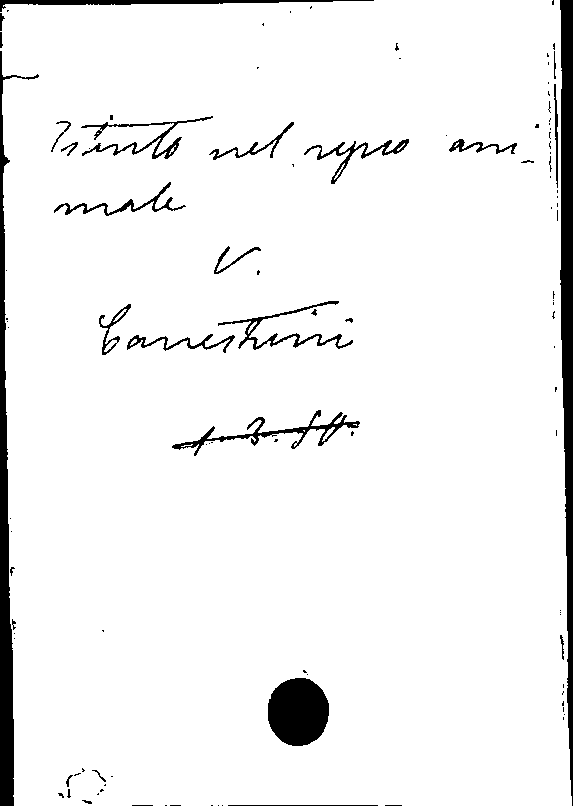 Istinto nel regno ani-
male
V.
Canestrini